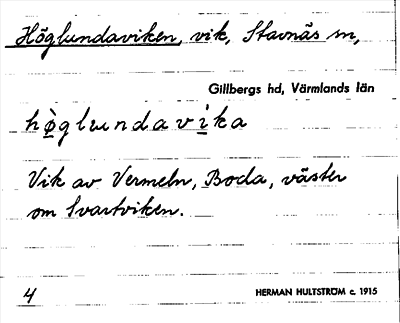 Höglundaviken, vik, Stavnäs sn,
Gillbergs hd, Värmlands län
hø̀glundavika
Vik av Vermeln, Boda, väster
om Svartviken.
4
HERMAN HULTSTRÖM c. 1915